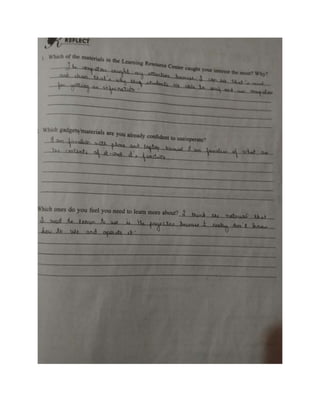 REFLECT
1. Which of the materials in the Learning Resource Center caught your interest the most? Why?
The computer caught my attention because I can see that's neat
and clean that's why many students are able to and use computer
for getting an information.
Which gadgets/materials are you already confident to use/operate?
I am familiar with phone and laptop because I am familiar of what are
the contents of it and it's function.
Which ones do you feel you need to learn more about? I think the material that
I need to learn to use is the projector because I really don't know
how to use and operate it.